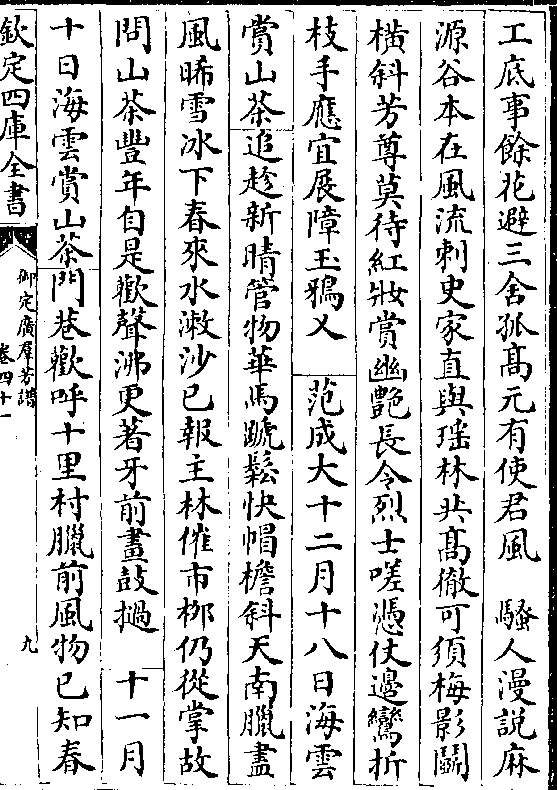 工底事餘花避三舍孤髙元有使君風　騷人漫説麻
源谷本在風流刺史家直與瑶林共髙徹可須梅影鬭
橫斜芳尊莫待紅妝賞幽艷長令烈士嗟憑仗邊鸞折
枝手應宜展障玉鵶叉　范成大十二月十八日海雲
賞山茶追趁新晴管物華馬蹏鬆快帽檐斜天南臘盡
風晞雪冰下春來水漱沙已報主林催市栁仍從掌故
問山茶豐年自是歡聲沸更著牙前畫鼓撾　十一月
十日海雲賞山茶門巷歡呼十里村臘前風物已知春
欽定四庫全書
御定廣羣芳譜
卷四十一
九